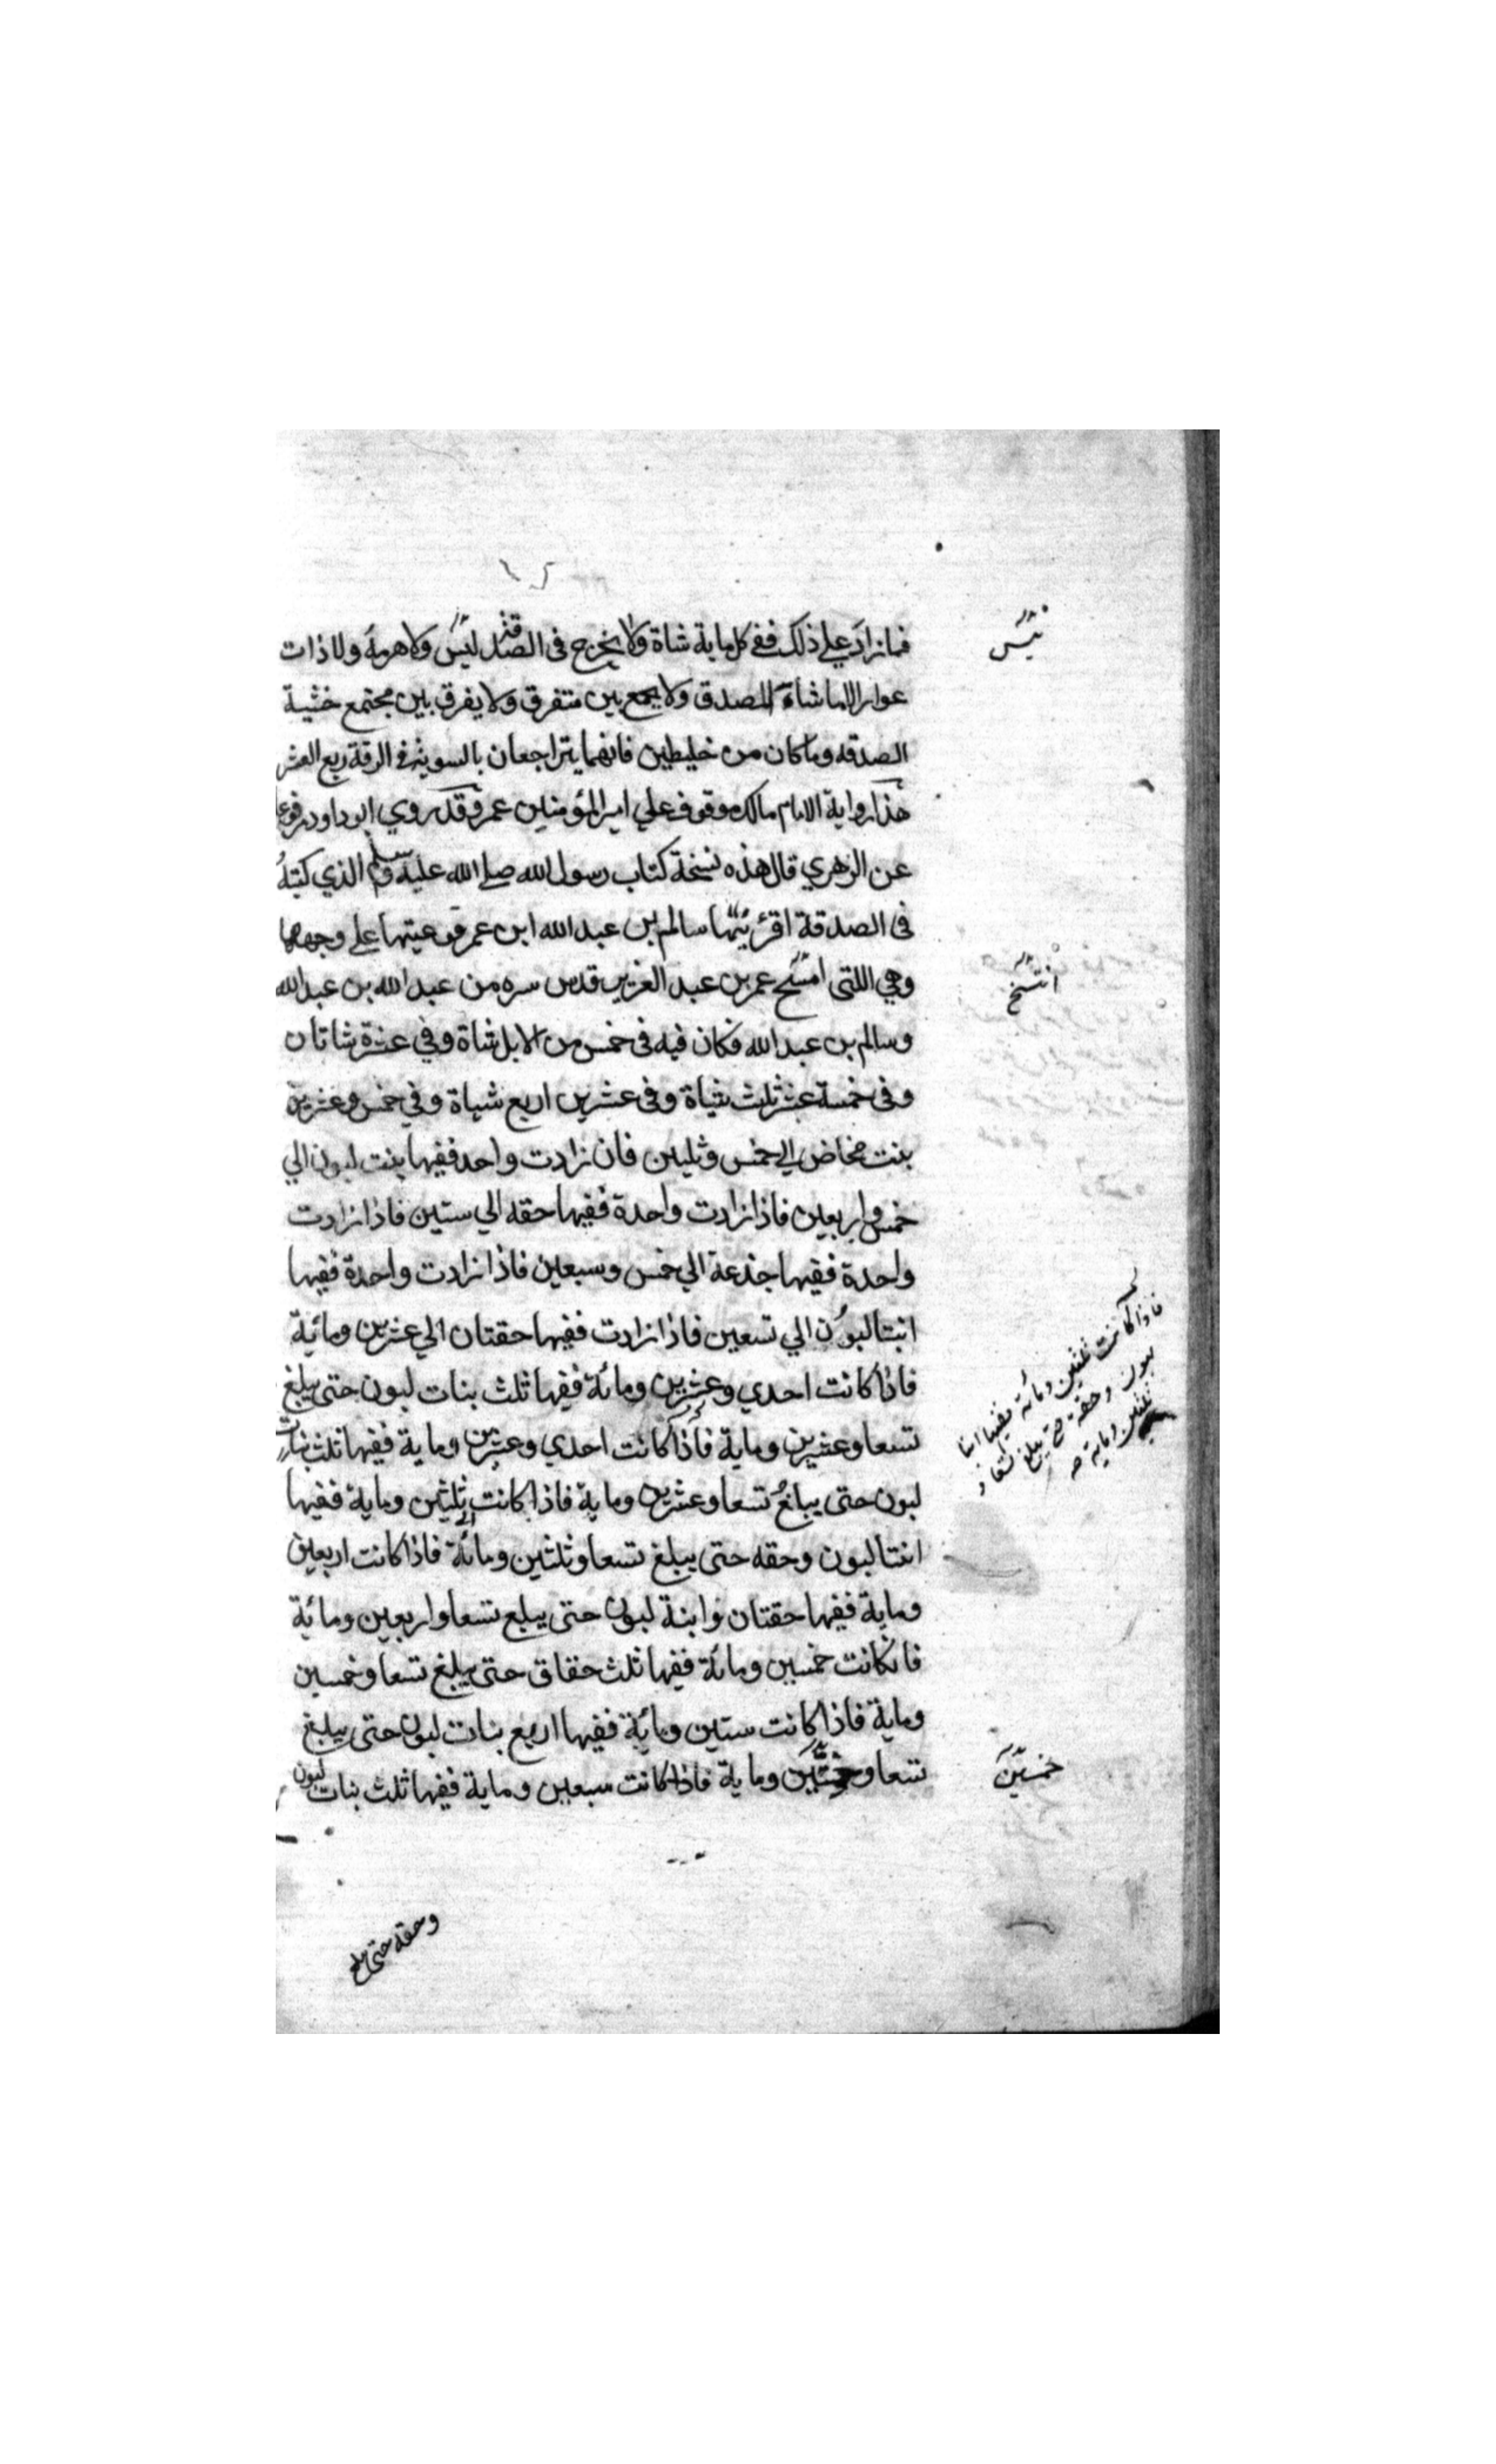 فما زاد علي ذلك ففي كل ماية شاة ولا يخرج في الصدقة ليس ولا هرمة ولا ذات
تيس
عوار الا ما شاة المصدق ولا يجمع بين متفرق ولا يفرق بين مجتمع خشية
الصدقه وما كان من خليطين فانهما يتراجعان بالسوية في الرقة ربع العشر
هذا رواية الامام مالك موقوف علي امير المؤمنين عمر وقد روي ابو داود مرفوعا
عن الزهري قال هذه نسخة كتاب رسول الله صلي الله عليه وسلم الذي كتبه
في الصدقة اقرئنيها سالم بن عبد الله ابن عمر فوعيتها علي وجهها
وهي اللتي امتسح عمر بن عبد العزيز قدس سره من عبد الله بن عبد الله
انتسخ
وسالم بن عبد الله فكان فيه في خمس من الابل شاة وفي عشرة شاتان
وفي خمسة عشر ثلث شياة وفي عشرين اربع شياة وفي خمس وعشرين
بنت مخاض الي خمس وثلثين فان زادت واحد ففيها بنت لبون الي
خمس واربعين فاذا زادت واحدة ففيها حقه الي ستين فاذا زادت
واحدة ففيها جذعة الي خمس وسبعين فاذا زادت واحدة ففيها
ابنتا لبون الي تسعين فاذا زادت ففيها حقتان الي عشرين ومائة
فاذا كانت احدي وعشرين ومائة ففيها ثلث بنات لبون حتى يبلغ
تسعا وعشرين وماية فاذا كانت احدي وعشرين وماية ففيها ثلث بنات
فاذا كانت ثلثين ومائة ففيها ابنتا
لبون وحقة حتي يبلغ تسعا و
ثلثين وماية صح
لبون حتى يبلغ تسعا وعشرين وماية فاذا كانت ثلثين وماية ففيها
ابنتا لبون وحقه حتى يبلغ تسعا وثلثين ومائة فاذا كانت اربعين
وماية ففيها حقتان وابنة لبون حتى يبلع تسعا واربعين ومائة
فاذا كانت خمسين ومائة ففيها ثلث حقاق حتى يبلغ تسعا وخمسين
وماية فاذا كانت ستين ومائة ففيها اربع بنات لبون حتى يبلغ
تسعا وستين وماية فاذا كانت سبعين وماية ففيها ثلث بنات لبون
خمسين
وحقه حتى يبلغ